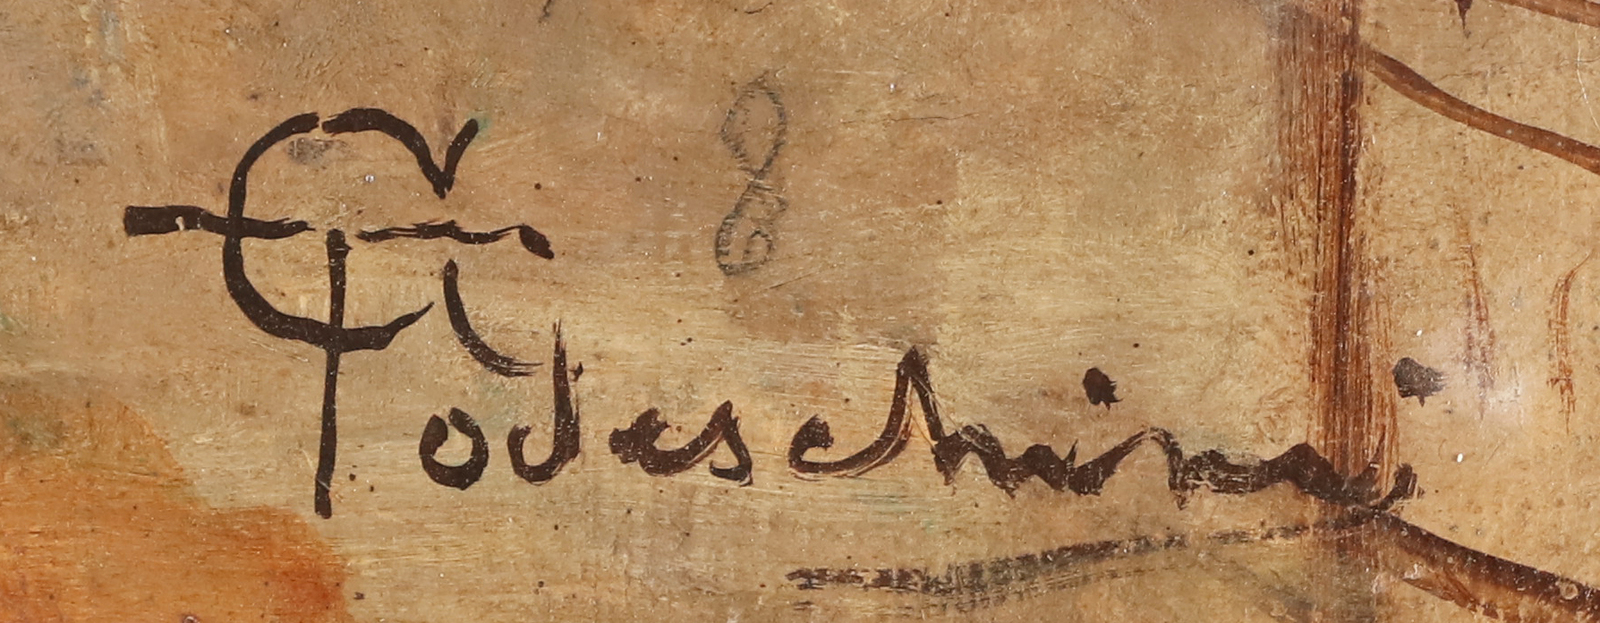 G Todeschini
8